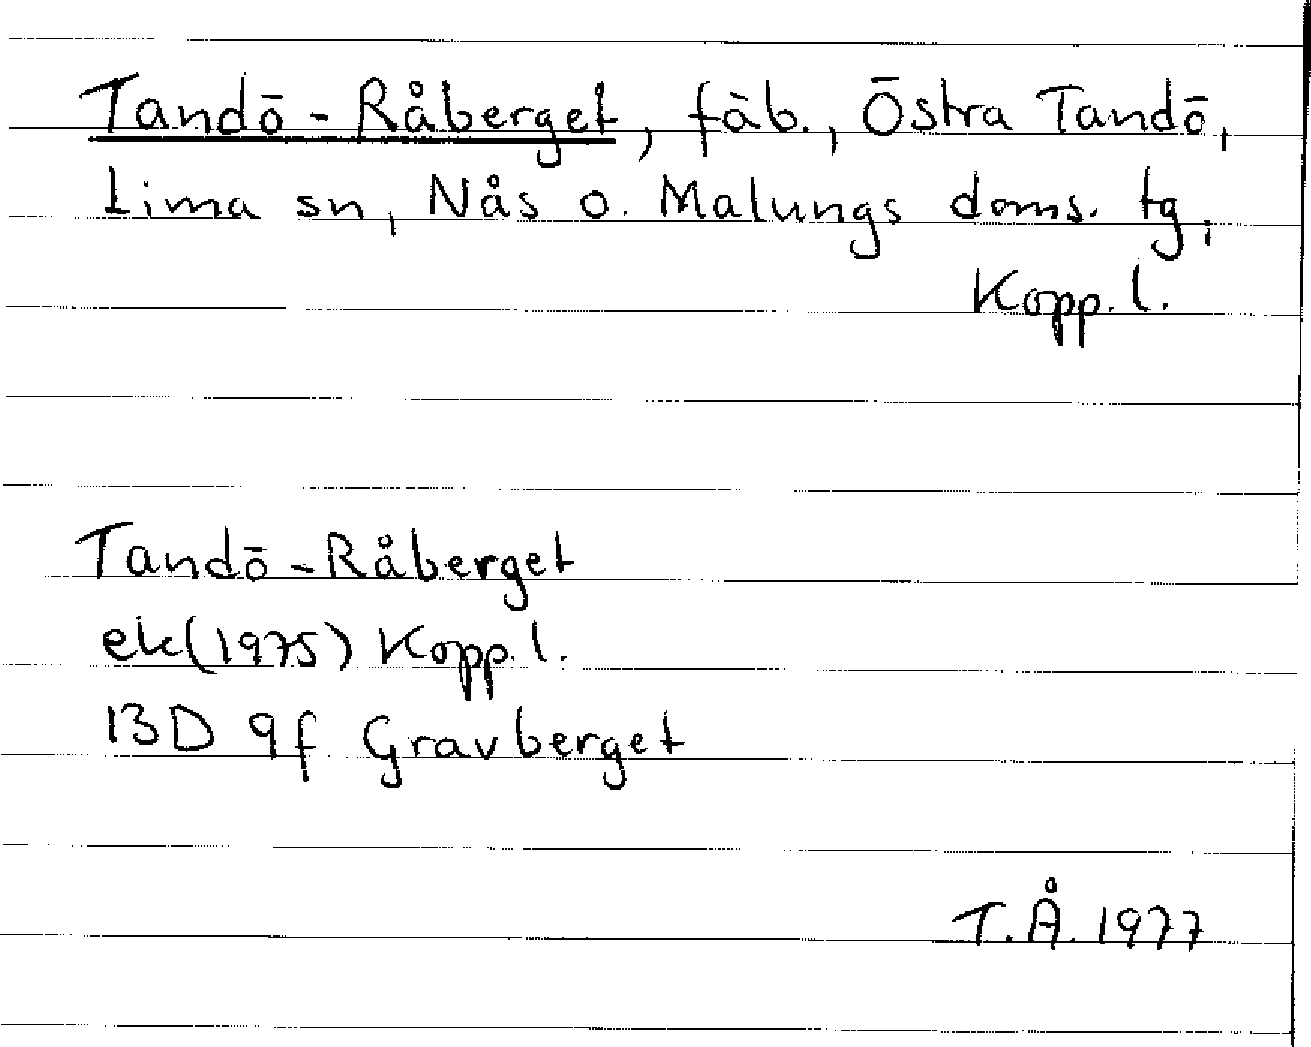 Tandö-Råberget, fäb., Östra Tandö,
Lima sn, Nås o. Malungs doms. tg,
Kopp. l.
Tandö-Råberget
ek(1975) Kopp. l.
13D 9f Gravberget
T.Å. 1977